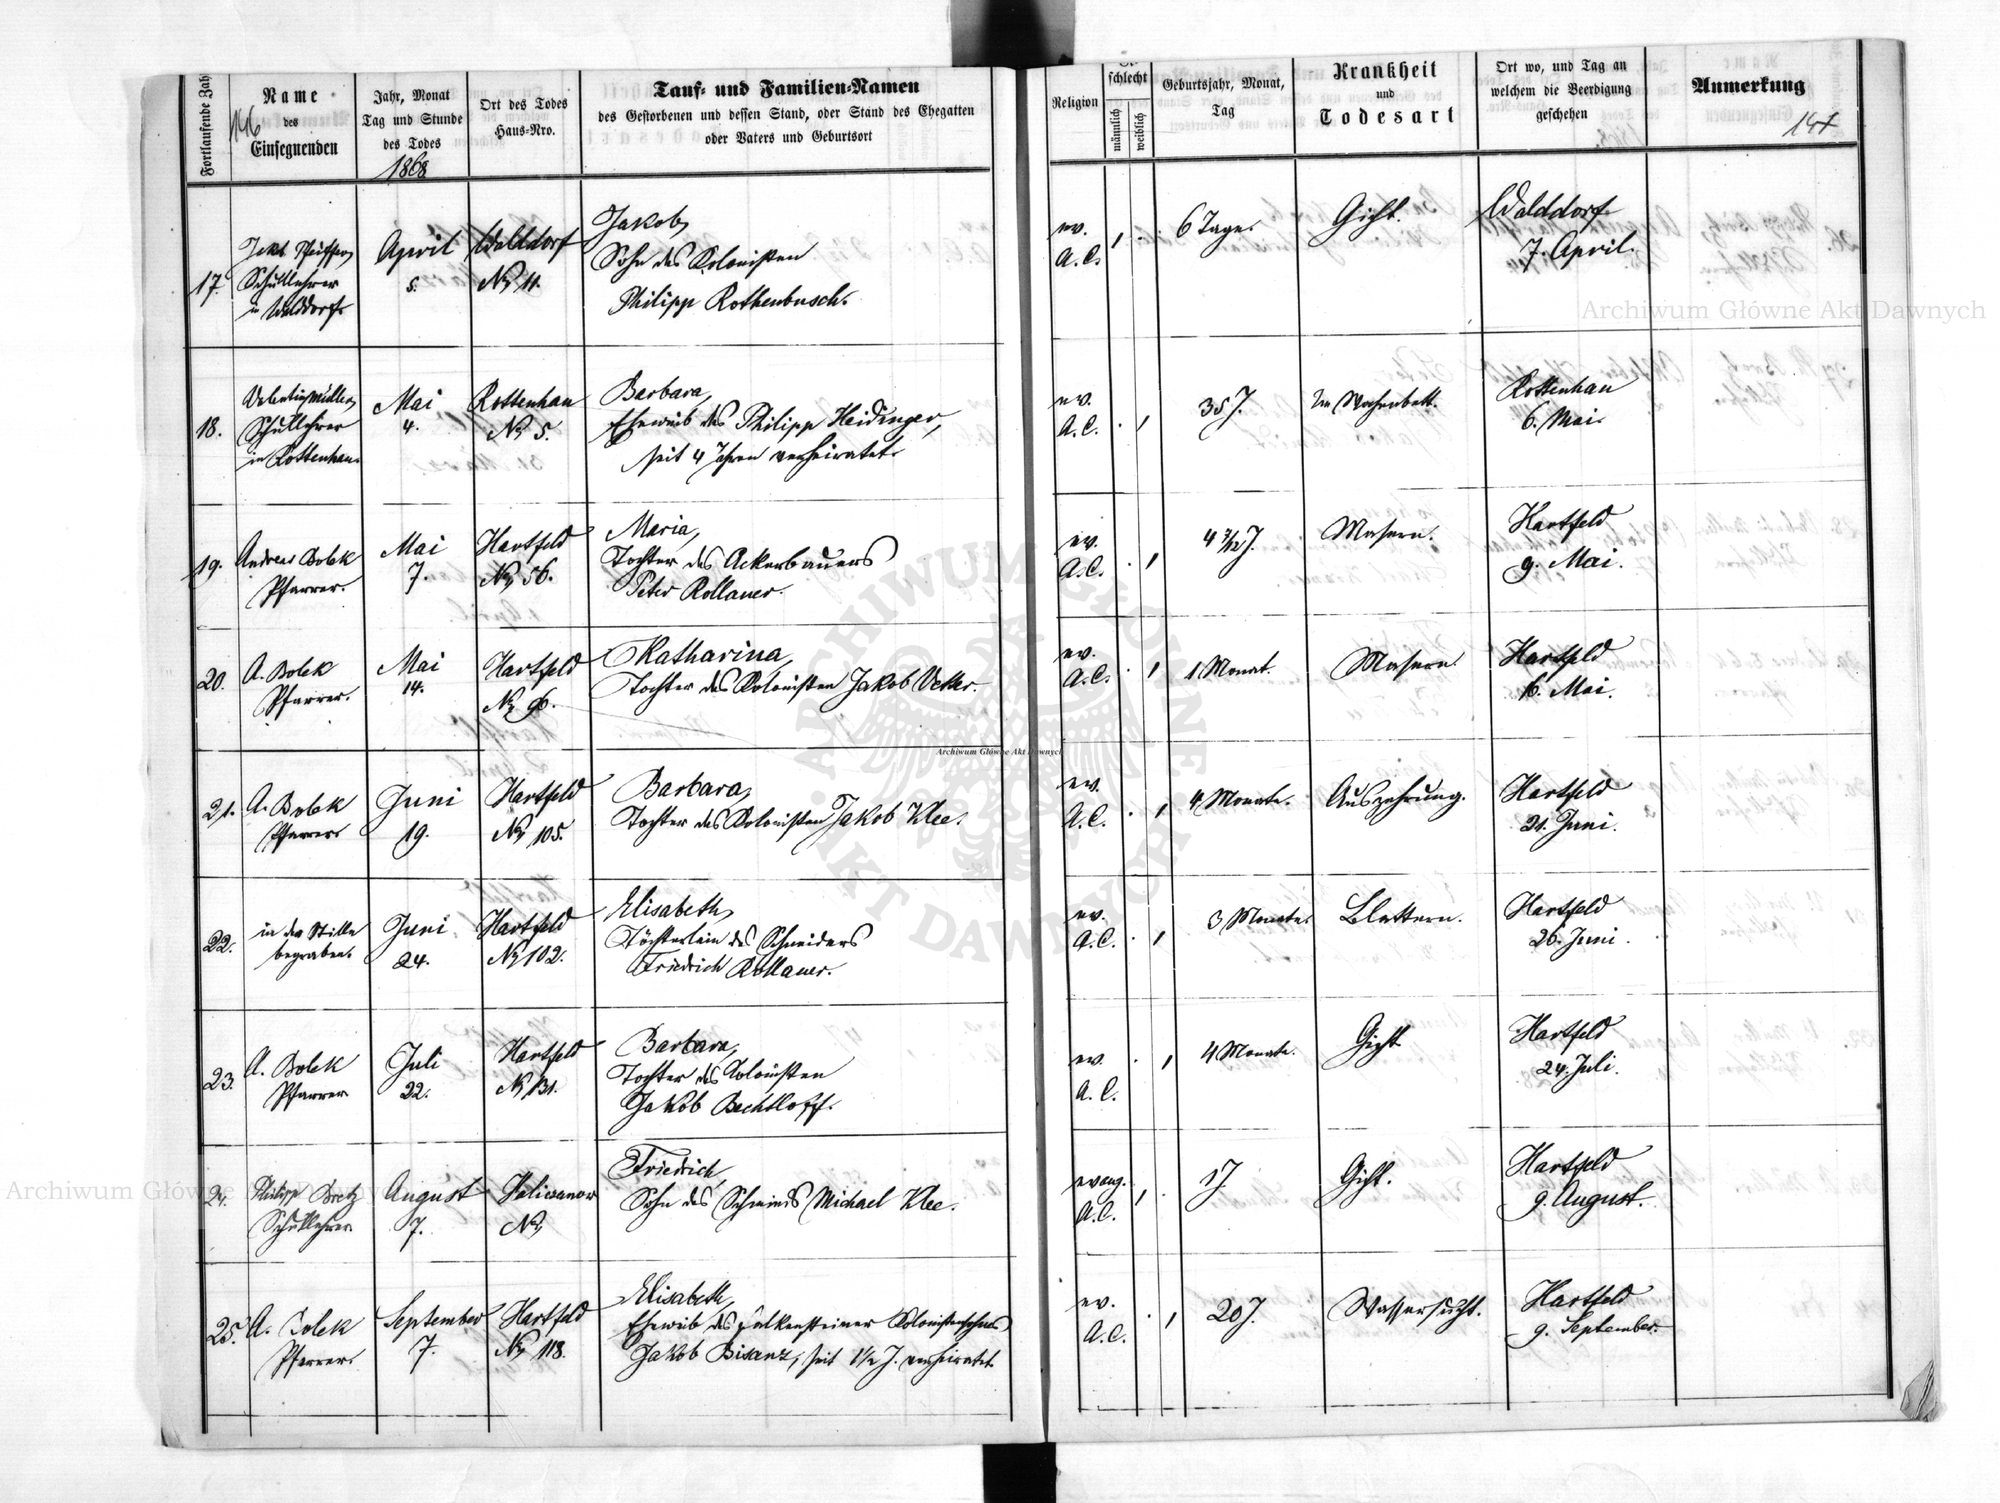 Fortlaufende Zahl
146
Name
des
Einsegnenden
Jahr, Monat
Tag und Stunde
des Todes
1868
Ort des Todes
Haus-Nro.
Tauf- und Familien-Namen
des Gestorbenen und dessen Stand, oder Stand des Ehegatten
oder Vaters und Geburtsort
Religion
schlecht
männlich
weiblich
Geburtsjahr, Monat,
Tag
Krankheit
und
Todesart
Ort wo, und Tag an
welchem die Beerdigung
geschehen
Anmerkung
147
17.
Schullehrer
in Walddorf.
April
5.
Walddorf
No 11.
Jakob,
Sohn des Kolonisten
Philipp Rothenbusch.
ev.
A. C.
6 Tage.
Gicht.
Walddorf
7. April.
18.
Valentin Müller,
Schullehrer
in Rottenhan.
Mai
4.
Rottenhan
No 5.
Barbara,
Eheweib des Philipp Heidinger,
seit 4 Jahren verheiratet.
ev.
A. C.
35 J.
Im Wochenbett.
Rottenhan
6. Mai.
19.
Andreas Bolek
Pfarrer.
Mai
7.
Hartfeld
No 56.
Maria,
Tochter des Ackerbauers
Peter Rollauer.
ev.
A. C.
4 7/12 J.
Masern.
Hartfeld
9. Mai.
20.
A. Bolek
Pfarrer.
Mai
14.
Hartfeld
No 96.
Katharina,
Tochter des Kolonisten Jakob Vetter.
ev.
A. C.
1 Monat.
Masern.
Hartfeld
16. Mai.
21.
A. Bolek
Pfarrer
Juni
19.
Hartfeld
No 105.
Barbara,
Tochter des Kolonisten Jakob Klee.
ev.
A. C.
4 Monate.
Auszehrung.
Hartfeld
21. Juni.
22.
in der Stille
begraben.
Juni
24.
Hartfeld
No 102.
Elisabeth,
Töchterlein des Schneiders
Friedrich Rollauer.
ev.
A. C.
3 Monate.
Blattern.
Hartfeld
26. Juni.
23.
A. Bolek
Pfarrer
Juli
22.
Hartfeld
No 131.
Barbara,
Tochter des Kolonisten
Jakob Bechtloff.
ev.
A. C.
4 Monate.
Gicht
Hartfeld
24. Juli.
24.
Philipp Bretz
Schullehrer
August
7.
Haliczanow
No
Friedrich,
Sohn des Schmieds Michael Klee.
evang.
A. C.
1 J.
Gicht.
Hartfeld
9. August.
25.
A. Bolek
Pfarrer.
September
7.
Hartfeld
No 118.
Elisabeth,
Eheweib des Falkensteiner Kolonistensohnes
Jakob Bisanz, seit 1 1/2 J. verheiratet
ev.
A. C.
20 J.
Wassersucht.
Hartfeld
9. September.
Archiwum Główne Akt Dawnych
Archiwum Główne Akt Dawnych
Archiwum Główne Akt Dawnych
ARCHIWUM GŁÓWNE AKT DAWNYCH